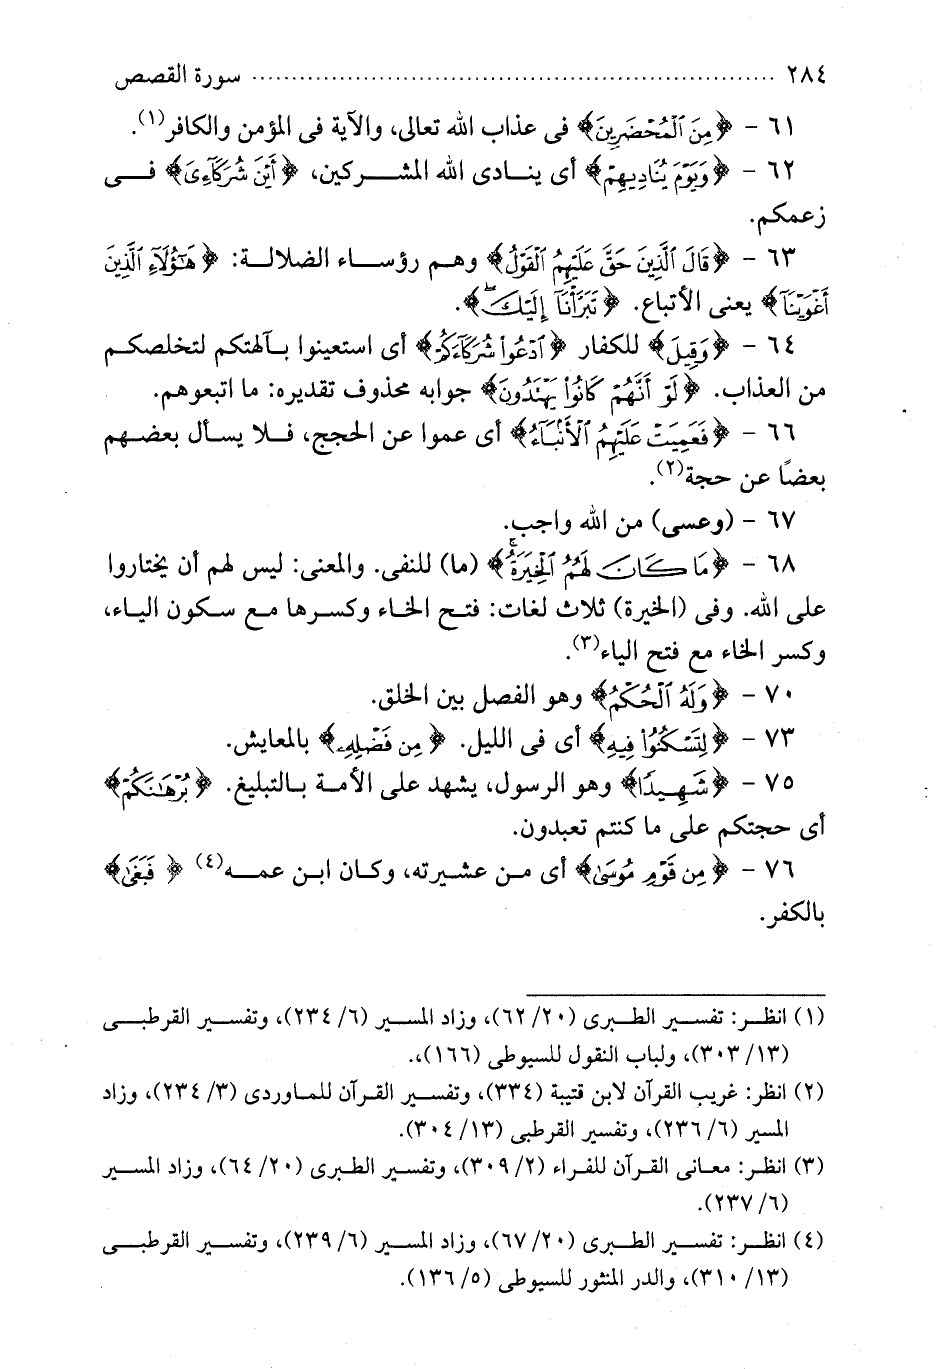 ٢٨٤ ........................................................ سورة القصص
٦١ - ﴿مِنَ ٱلْمُحْضَرِينَ﴾ فى عذاب الله تعالى، والآية فى المؤمن والكافر(١).
٦٢ - ﴿وَيَوْمَ يُنَادِيهِمْ﴾ أى ينادى الله المشركين، ﴿أَيْنَ شُرَكَآءِىَ﴾ فى
زعمكم.
٦٣ - ﴿قَالَ ٱلَّذِينَ حَقَّ عَلَيْهِمُ ٱلْقَوْلُ﴾ وهم رؤساء الضلالة: ﴿هَـٰٓؤُلَآءِ ٱلَّذِينَ
أَغْوَيْنَآ﴾ يعنى الأتباع. ﴿تَبَرَّأْنَآ إِلَيْكَ ۖ﴾.
٦٤ - ﴿وَقِيلَ﴾ للكفار ﴿ٱدْعُوا۟ شُرَكَآءَكُمْ﴾ أى استعينوا بآلهتكم لتخلصكم
من العذاب. ﴿لَوْ أَنَّهُمْ كَانُوا۟ يَهْتَدُونَ﴾ جوابه محذوف تقديره: ما اتبعوهم.
٦٦ - ﴿فَعَمِيَتْ عَلَيْهِمُ ٱلْأَنۢبَآءُ﴾ أى عموا عن الحجج، فلا يسأل بعضهم
بعضًا عن حجة(٢).
٦٧ - (وعسى) من الله واجب.
٦٨ - ﴿مَا كَانَ لَهُمُ ٱلْخِيَرَةُ ۚ﴾ (ما) للنفى. والمعنى: ليس لهم أن يختاروا
على الله. وفى (الخيرة) ثلاث لغات: فتح الخاء وكسرها مع سكون الياء،
وكسر الخاء مع فتح الياء(٣).
٧٠ - ﴿وَلَهُ ٱلْحُكْمُ﴾ وهو الفصل بين الخلق.
٧٣ - ﴿لِتَسْكُنُوا۟ فِيهِ﴾ أى فى الليل. ﴿مِن فَضْلِهِۦ﴾ بالمعايش.
٧٥ - ﴿شَهِيدًا﴾ وهو الرسول، يشهد على الأمة بالتبليغ. ﴿بُرْهَـٰنَكُمْ﴾
أى حجتكم على ما كنتم تعبدون.
٧٦ - ﴿مِن قَوْمِ مُوسَىٰ﴾ أى من عشيرته، وكان ابن عمه(٤) ﴿فَبَغَىٰ﴾
بالكفر.
(١) انظر: تفسير الطبرى (٢٠/ ٦٢)، وزاد المسير (٦/ ٢٣٤)، وتفسير القرطبى
(١٣/ ٣٠٣)، ولباب النقول للسيوطى (١٦٦)،.
(٢) انظر: غريب القرآن لابن قتيبة (٣٣٤)، وتفسير القرآن للماوردى (٣/ ٢٣٤)، وزاد
المسير (٦/ ٢٣٦)، وتفسير القرطبى (١٣/ ٣٠٤).
(٣) انظر: معانى القرآن للفراء (٢/ ٣٠٩)، وتفسير الطبرى (٢٠/ ٦٤)، وزاد المسير
(٦/ ٢٣٧).
(٤) انظر: تفسير الطبرى (٢٠/ ٦٧)، وزاد المسير (٦/ ٢٣٩)، وتفسير القرطبى
(١٣/ ٣١٠)، والدر المنثور للسيوطى (٥/ ١٣٦).